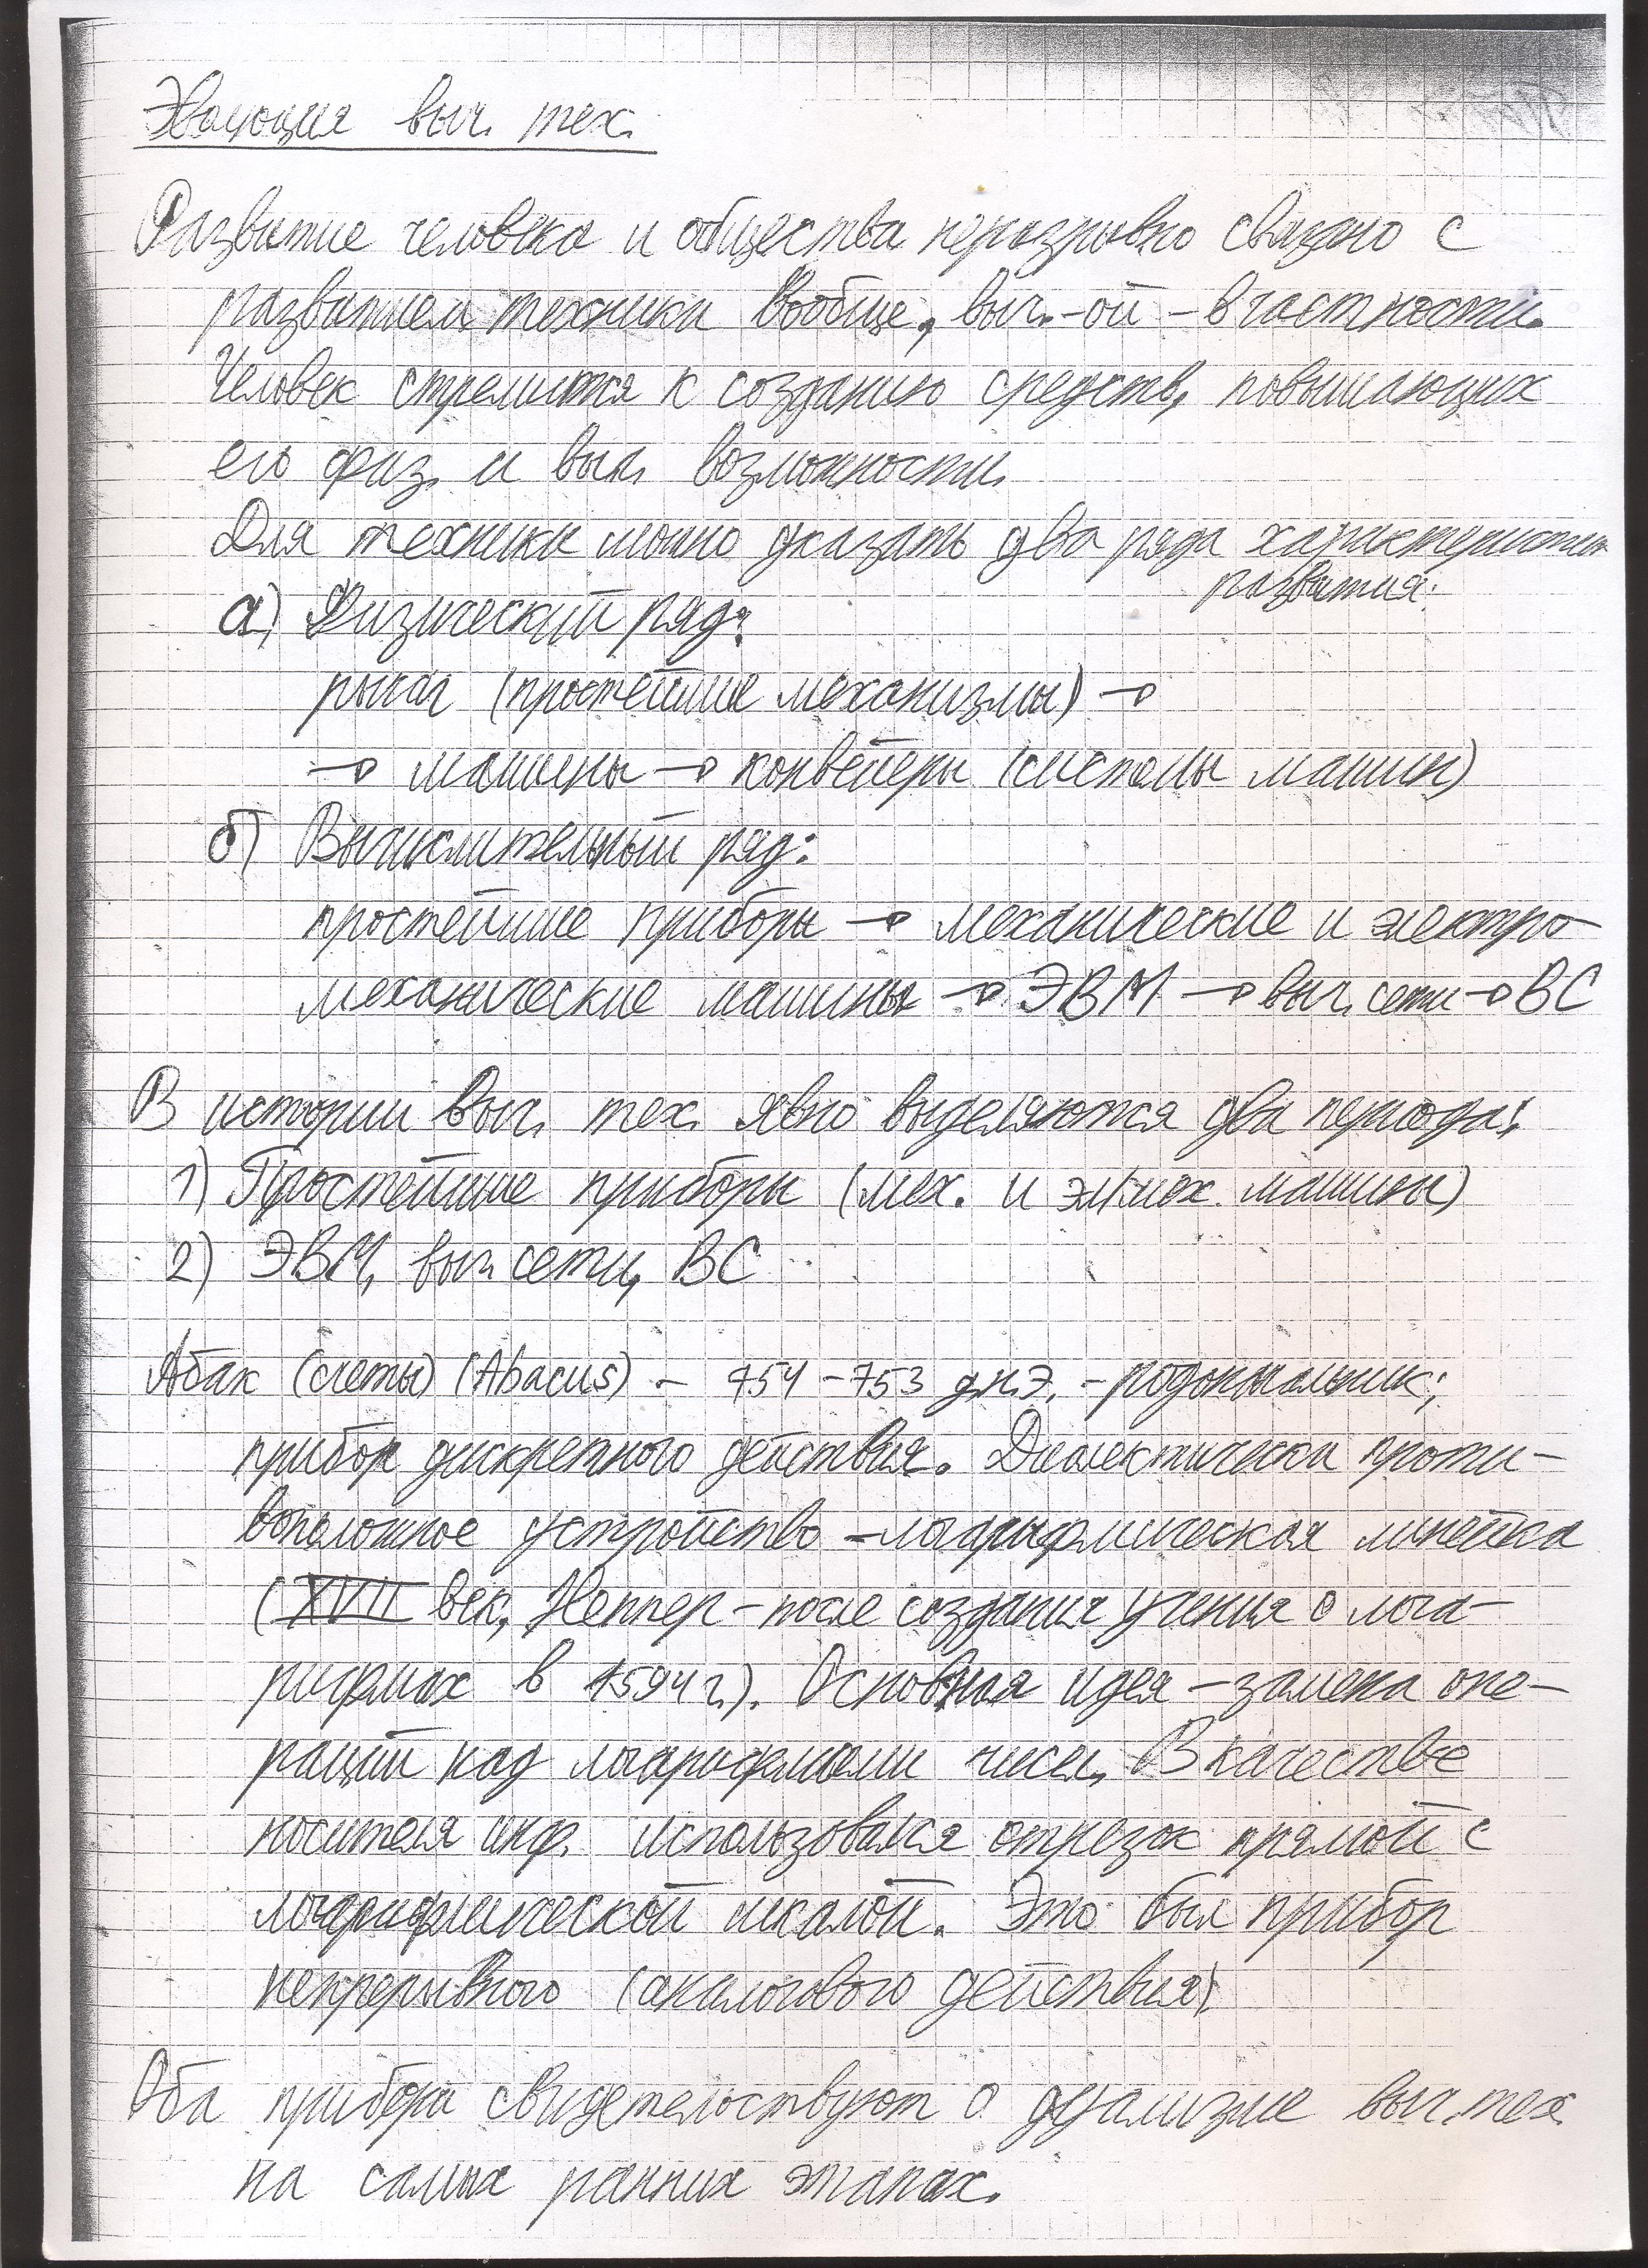 Эволюция выч. тех.
Развитие человека и общества неразрывно связано с
развитием техники вообще, выч.-ой - в частности.
Человек стремится к созданию средств, повышающих
его физ. и выч. возможности.
Для техники можно указать два ряда характеристик
развития:
а) Физический ряд:
рычаг (простейшие механизмы) →
→ машины → конвейеры (системы машин)
б) Вычислительный ряд:
простейшие приборы → механические и электро-
механические машины → ЭВМ → выч. сети → ВС
В истории выч. тех. явно выделяются два периода:
1) Простейшие приборы (мех. и эл/мех. машины)
2) ЭВМ, выч. сети, ВС
Абак (счеты) (Abacus) - 754-753 д.н.э. - родоначальник;
прибор дискретного действия. Диалектически проти-
воположное устройство - логарифмическая линейка
(XVII век, Неппер - после создания учения о лога-
рифмах в 1594 г.). Основная идея - замена опе-
раций над логарифмами чисел. В качестве
носителя инф. использовался отрезок прямой с
логарифмической шкалой. Это был прибор
непрерывного (аналогового действия).
Оба прибора свидетельствуют о дуализме выч. тех.
на самых ранних этапах.